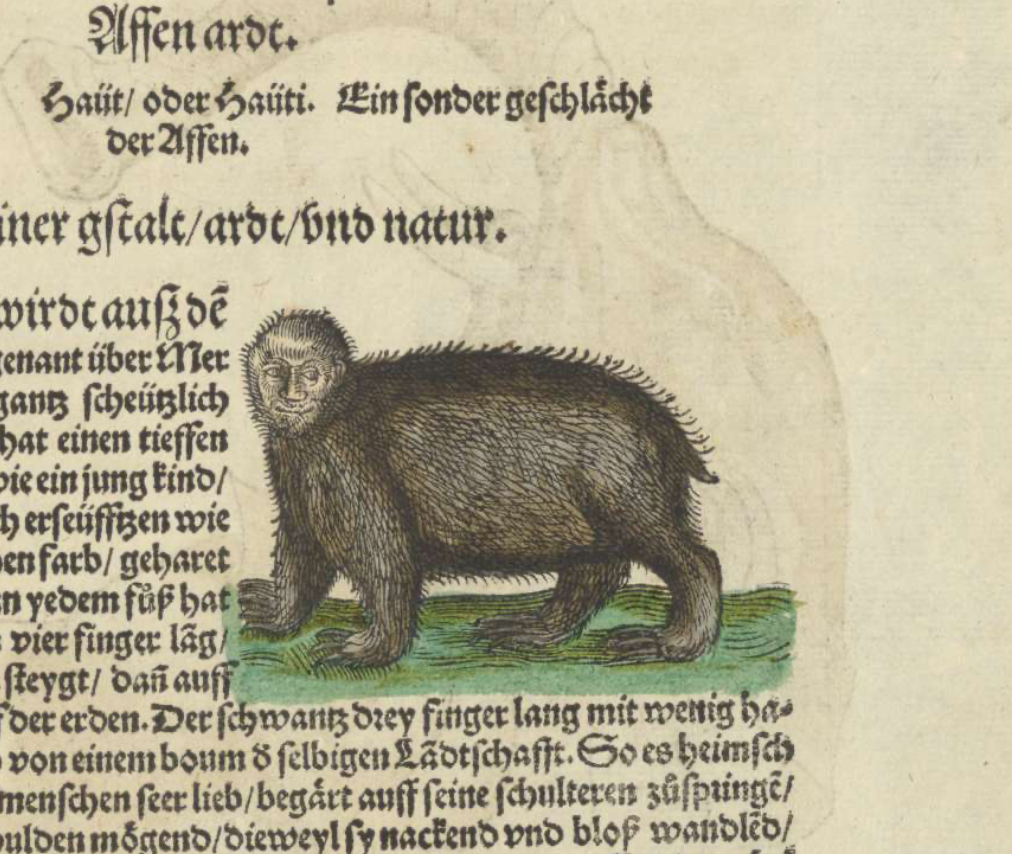 Affen ardt.
Haüt/ oder Haüti. Ein sonder geschlächt
der Affen.
iner gstalt/ardt/vnd natur.
wirdt aufz dē
genant über Mer
gantz scheützlich
hat einen tieffen
wie ein jung kind/
erseüfftzen wie
farb/ geharet
yedem fůß hat
vier finger lāg/
steygt/ dañ auff
der erden. Der schwantz drey finger lang mit wenig ha-
von einem boum d̄ selbigen Lādtschafft. So es heimsch
menschen seer lieb/begärt auff seine schulteren zůspringē/
mögend/dieweyl sy nackend vnd bloß wandlēd/